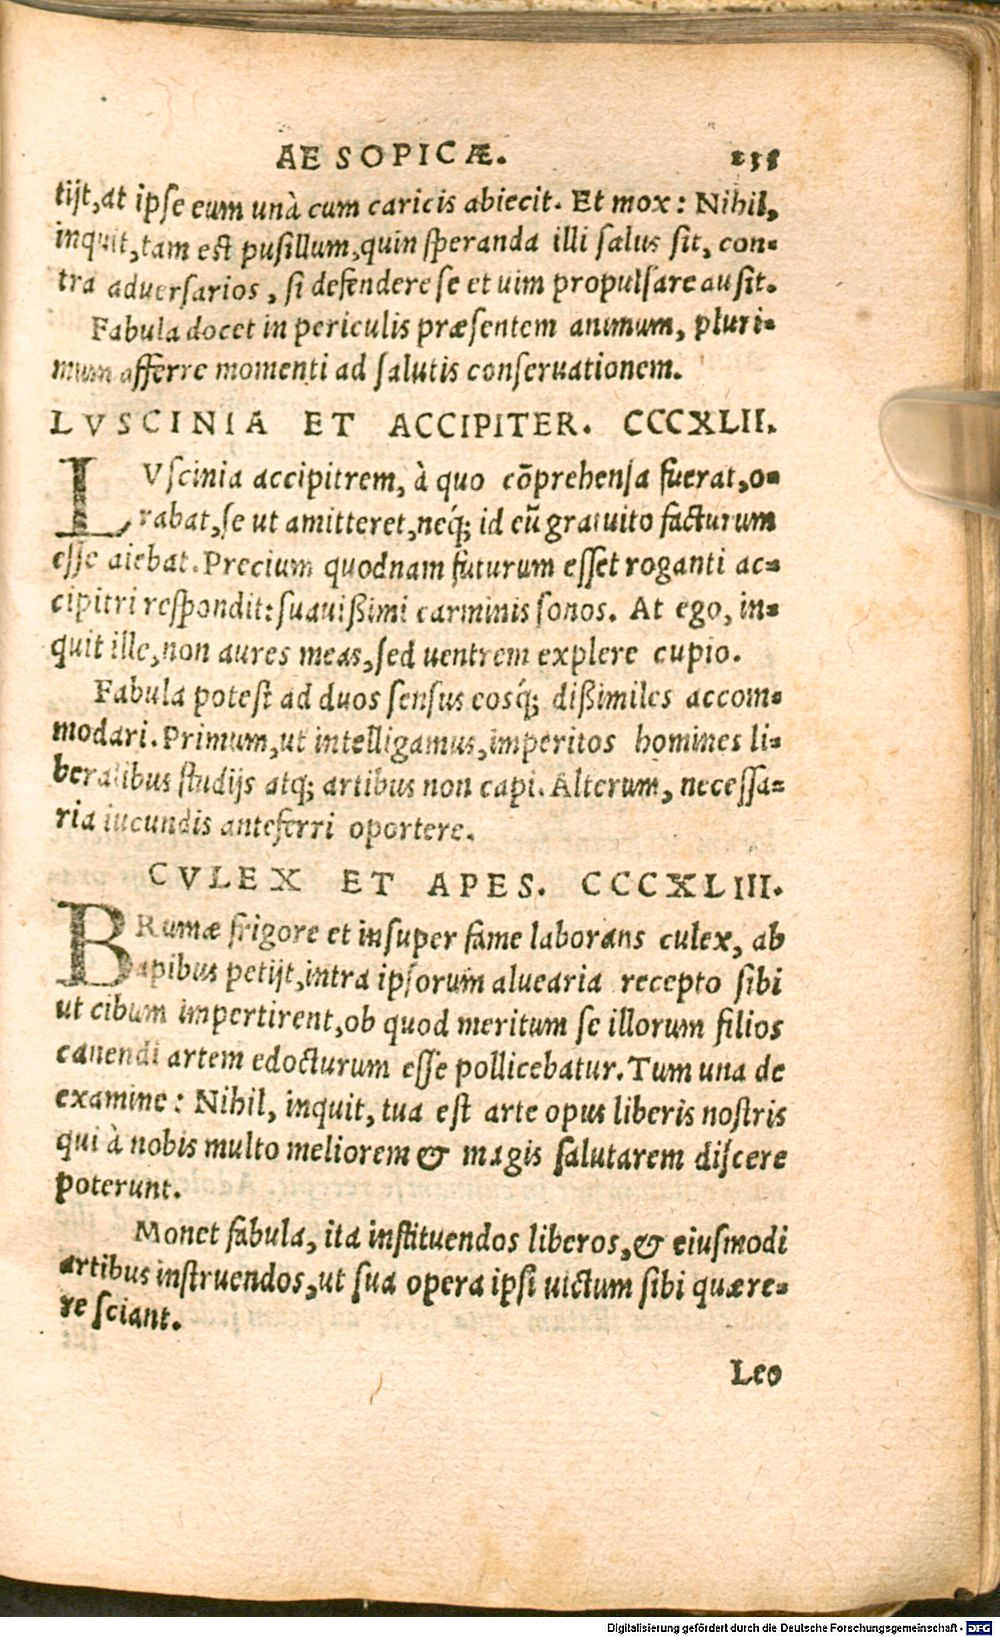 AESOPICÆ. 235
tijt, at ipse eum unà cum caricis abiecit. Et mox: Nihil,
inquit, tam est pusillum, quin speranda illi salus sit, con-
tra aduersarios, si defendere se et uim propulsare ausit.
Fabula docet in periculis præsentem animum, pluri-
mum afferre momenti ad salutis conseruationem.
LVSCINIA ET ACCIPITER. CCCXLII.
LVscinia accipitrem, à quo cōprehensa fuerat, o-
rabat, se ut amitteret, neq́; id eū gratuito facturum
esse aiebat. Precium quodnam futurum esset roganti ac-
cipitri respondit: suauißimi carminis sonos. At ego, in-
quit ille, non aures meas, sed uentrem explere cupio.
Fabula potest ad duos sensus eosq́; dißimiles accom-
modari. Primum, ut intelligamus, imperitos homines li-
beralibus studijs atq; artibus non capi. Alterum, necessa-
ria iucundis anteferri oportere.
CVLEX ET APES. CCCXLIII.
BRumæ frigore et insuper fame laborans culex, ab
apibus petijt, intra ipsorum aluearia recepto sibi
ut cibum impertirent, ob quod meritum se illorum filios
canendi artem edocturum esse pollicebatur. Tum una de
examine: Nihil, inquit, tua est arte opus liberis nostris
qui à nobis multo meliorem & magis salutarem discere
poterunt.
Monet fabula, ita instituendos liberos, & eiusmodi
artibus instruendos, ut sua opera ipsi uictum sibi quære-
re sciant.
Leo
Digitalisierung gefördert durch die Deutsche Forschungsgemeinschaft - DFG